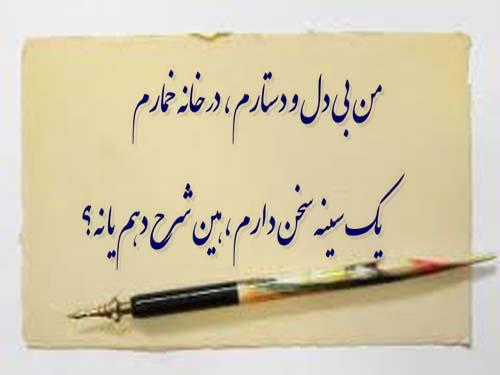 من بی دل و دستارم، در خانه خمارم
یک سینه سخن دارم، هین شرح دهم یا نه؟